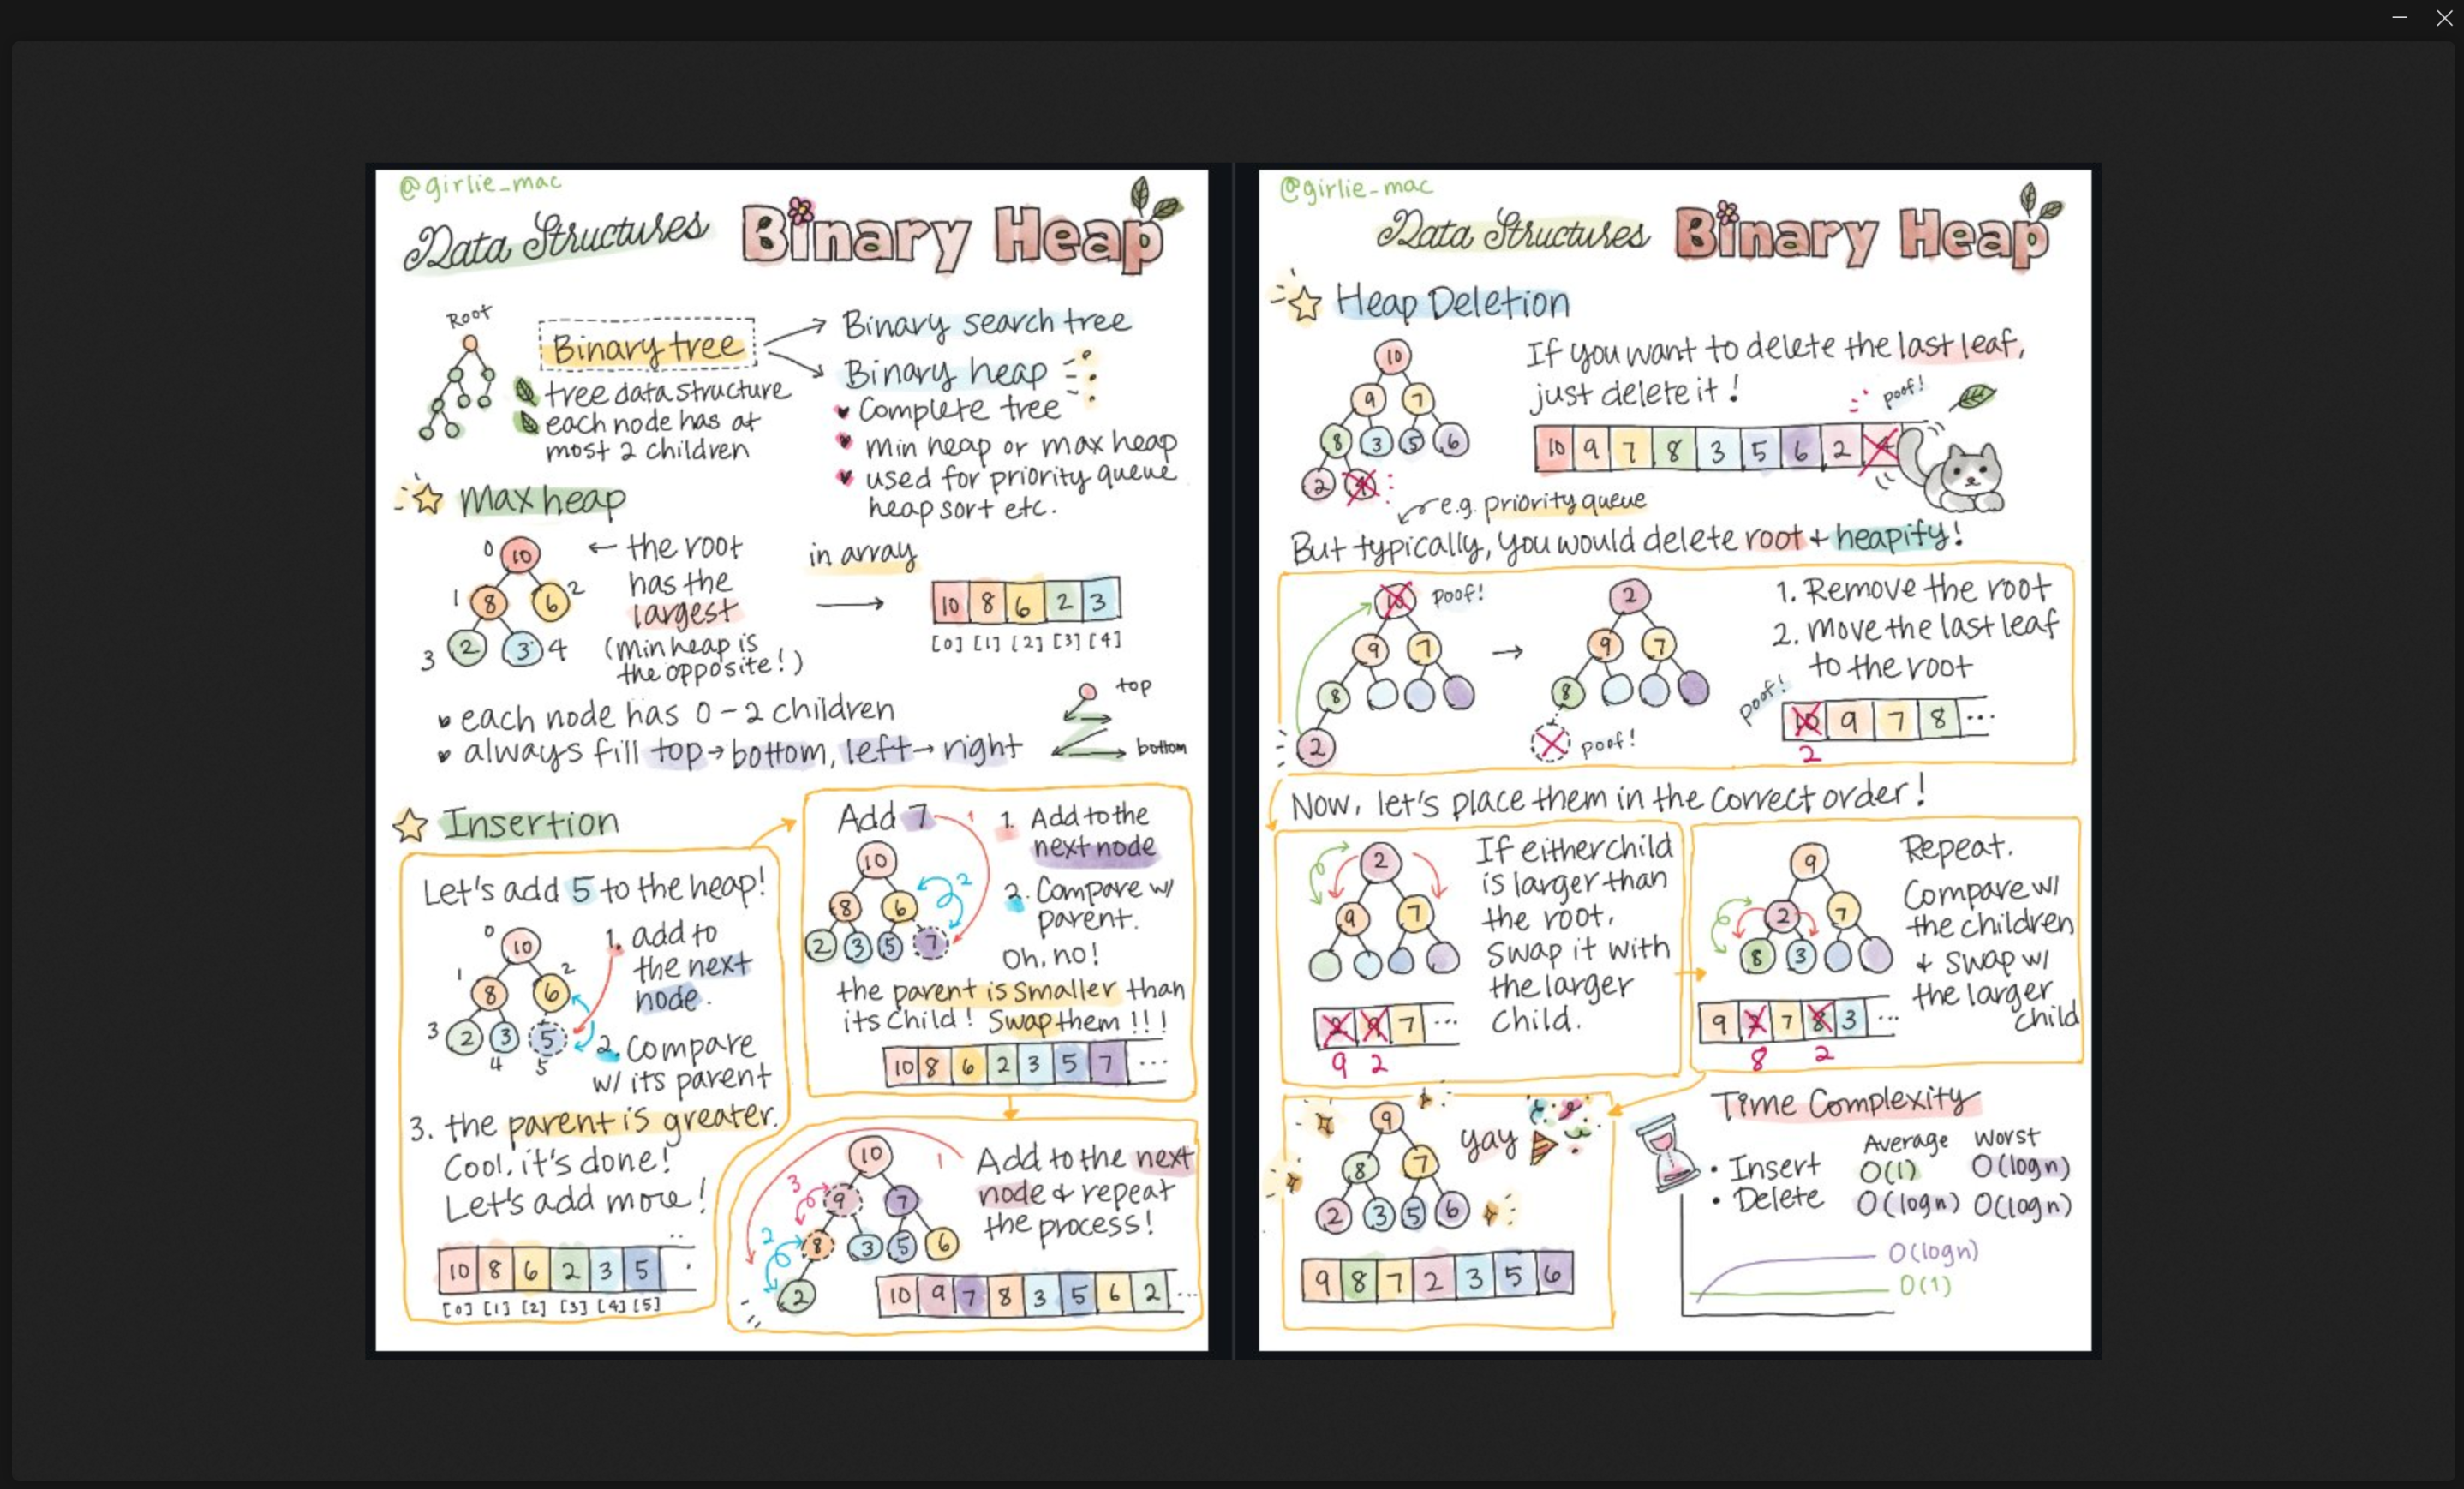 @girlie_mac
Data Structures Binary Heap
Root
Binary tree
tree data structure
each node has at
most 2 children
Binary search tree
Binary heap
Complete tree
min heap or max heap
used for priority queue
heap sort etc.
Max heap
0 10
1 8 6 2
3 2 3 4
← the root
has the
largest
(min heap is
the opposite!)
in array
10 8 6 2 3
[0] [1] [2] [3] [4]
each node has 0 - 2 children
always fill top → bottom, left → right
top
bottom
Insertion
Let's add 5 to the heap!
0 10
1 8 6 2
3 2 3 5
4 5
1. add to
the next
node.
2. Compare
w/ its parent
3. the parent is greater.
Cool, it's done!
Let's add more!
10 8 6 2 3 5
[0] [1] [2] [3] [4] [5]
Add 7
1
10
8 6
2 3 5 7
2
1. Add to the
next node
2. Compare w/
parent.
Oh, no!
the parent is smaller than
its child! Swap them!!!
10 8 6 2 3 5 7 ...
10
9 7
8 3 5 6
2
1
2
3
Add to the next
node & repeat
the process!
10 9 7 8 3 5 6 2 ...
@girlie_mac
Data Structures Binary Heap
Heap Deletion
10
9 7
8 3 5 6
2 4
If you want to delete the last leaf,
just delete it!
poof!
10 9 7 8 3 5 6 2 4
e.g. priority queue
But typically, you would delete root + heapify!
10 poof!
9 7
8
2
→
2
9 7
8
poof!
1. Remove the root
2. Move the last leaf
to the root
poof!
10 9 7 8 ...
2
Now, let's place them in the correct order!
2
9 7
If either child
is larger than
the root,
swap it with
the larger
child.
2 9 7 ...
9 2
9
2 7
8 3
Repeat.
Compare w/
the children
& swap w/
the larger
child
9 2 7 8 3 ...
8 2
9
8 7
2 3 5 6
yay
9 8 7 2 3 5 6
Time Complexity
Average Worst
• Insert O(1) O(logn)
• Delete O(logn) O(logn)
O(logn)
O(1)